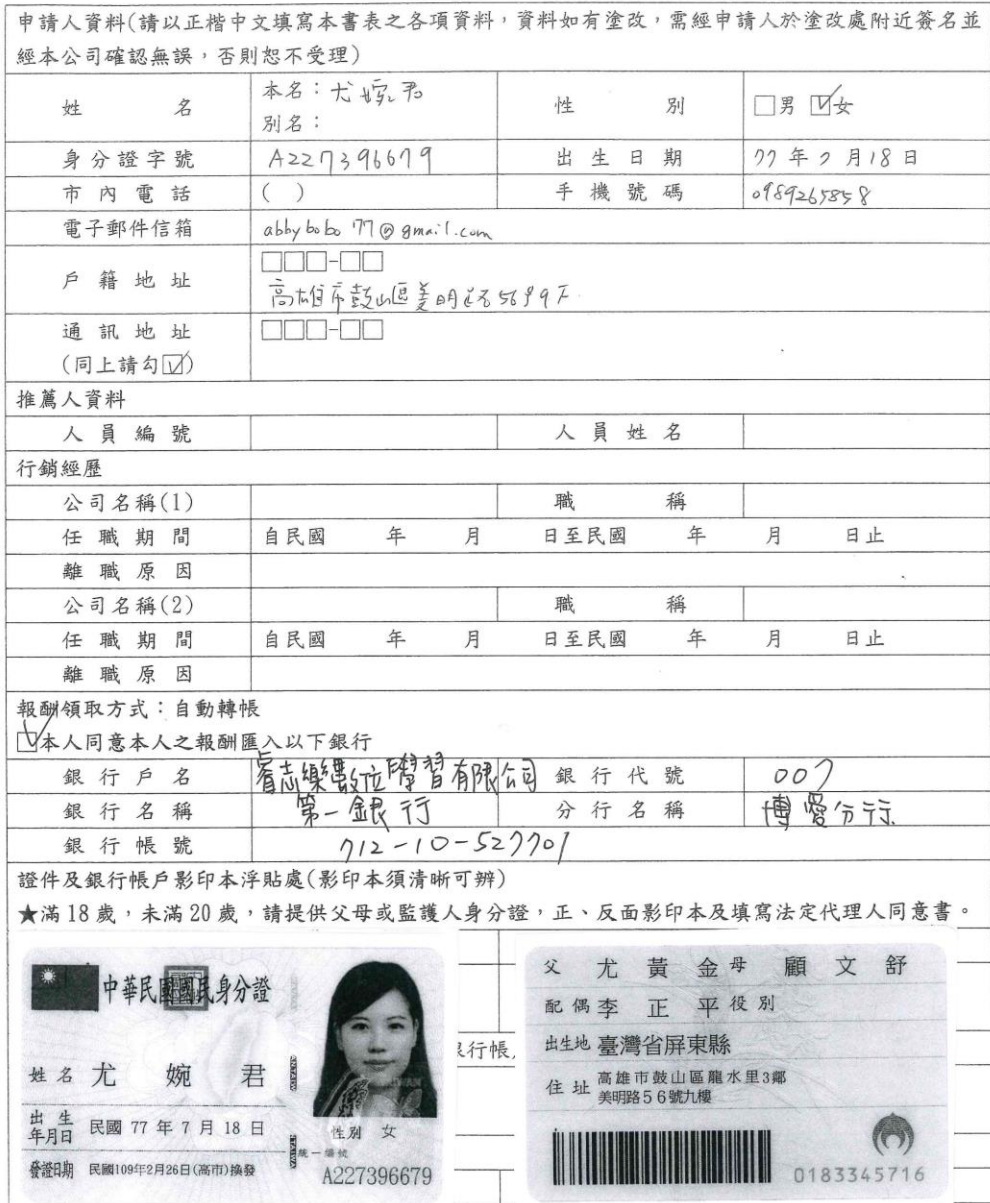 申請人資料(請以正楷中文填寫本書表之各項資料，資料如有塗改，需經申請人於塗改處附近簽名並
經本公司確認無誤，否則恕不受理)
姓 名 本名：尤婉君 性 別 □男 ☑女
別名：
身分證字號 A227396679 出生日期 77 年 7 月 18 日
市內電話 ( ) 手機號碼 0989265858
電子郵件信箱 abbybobo77@gmail.com
戶籍地址 □□□-□□
高雄市鼓山區美明路56號9F
通訊地址 □□□-□□
(同上請勾☑)
推薦人資料
人員編號 人員姓名
行銷經歷
公司名稱(1) 職 稱
任職期間 自民國 年 月 日至民國 年 月 日止
離職原因
公司名稱(2) 職 稱
任職期間 自民國 年 月 日至民國 年 月 日止
離職原因
報酬領取方式：自動轉帳
☑本人同意本人之報酬匯入以下銀行
銀行戶名 睿志樂數位學習有限公司 銀行代號 007
銀行名稱 第一銀行 分行名稱 博愛分行
銀行帳號 712-10-527701
證件及銀行帳戶影印本浮貼處(影印本須清晰可辨)
★滿18歲，未滿20歲，請提供父母或監護人身分證，正、反面影印本及填寫法定代理人同意書。
中華民國國民身分證
姓名 尤 婉 君
出生年月日 民國 77 年 7 月 18 日
性別 女
發證日期 民國109年2月26日(高市)換發
統一編號
A227396679
行帳
父 尤黃金 母 顧文舒
配偶 李正平 役別
出生地 臺灣省屏東縣
住址 高雄市鼓山區龍水里3鄰
美明路56號九樓
0183345716